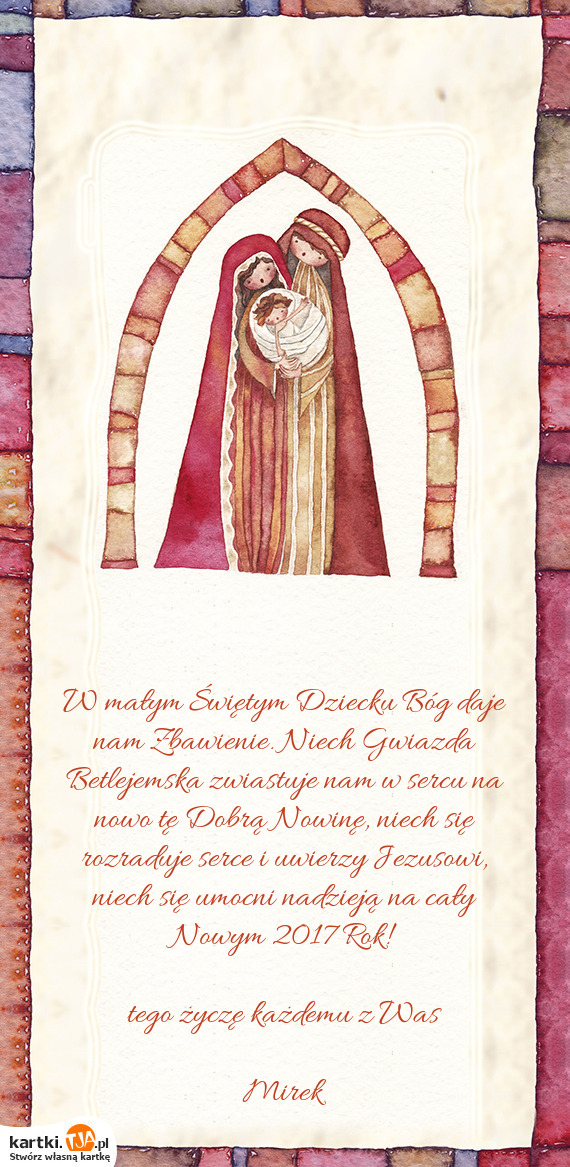 W małym Świętym Dziecku Bóg daje
nam Zbawienie. Niech Gwiazda
Betlejemska zwiastuje nam w sercu na
nowo tę Dobrą Nowinę, niech się
rozraduje serce i uwierzy Jezusowi,
niech się umocni nadzieją na cały
Nowym 2017 Rok!
tego życzę każdemu z Was
Mirek
kartki.TJA.pl
Stwórz własną kartkę